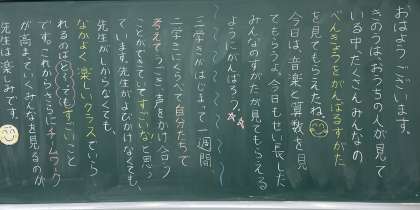 おはようございます。
きのうは、おうちの人が見て
いる中、たくさんみんなの
べんきょうをがんばるすがた
を見てもらえたね。
今日は、音楽と算数を見
てもらうよ。今日もせい長した
みんなのすがたが見てもらえる
ようにがんばろう。
三学きがはじまって一週間
二学きにくらべて自分たちで
考えてうごき、声をかけ合う
ことができていてすごいなと思っ
ています。先生がよびかけなくても、
先生がしからなくても、
なかよく楽しいクラスでいら
れるのはとってもすごいこと
です。これからさらにチームワーク
が高まっていくみんなを見るのが
先生は楽しみです。